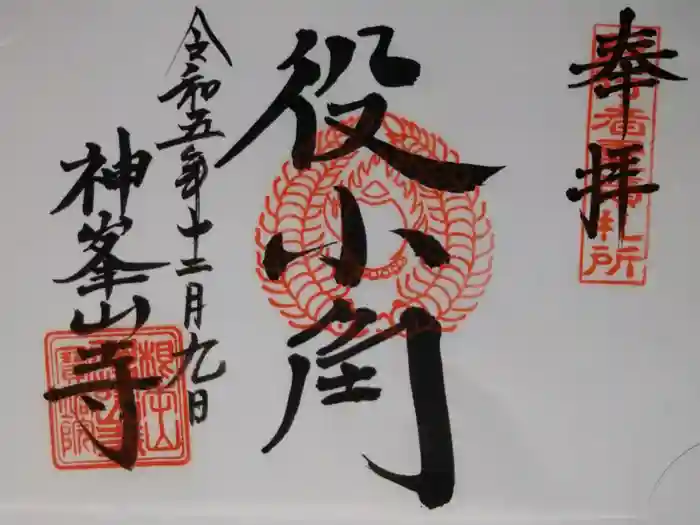 奉拝
役小角
令和五年十二月九日
神峯山寺